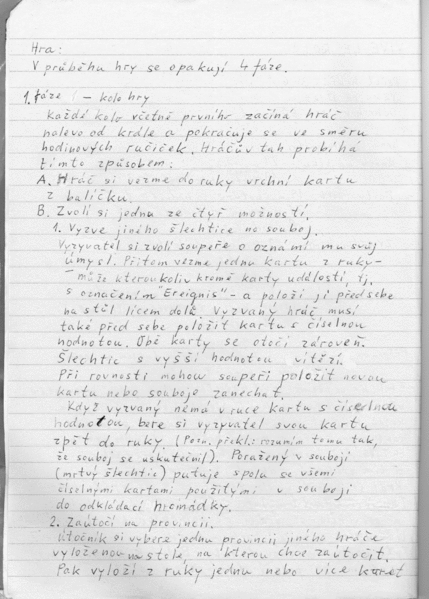 Hra:
V průběhu hry se opakují 4 fáze.
1. fáze - kolo hry
Každé kolo včetně prvního začíná hráč
nalevo od krále a pokračuje se ve směru
hodinových ručiček. Hráčův tah probíhá
tímto způsobem:
A. Hráč si vezme do ruky vrchní kartu
z balíčku.
B. Zvolí si jednu ze čtyř možností.
1. Vyzve jiného šlechtice na souboj.
Vyzyvatel si zvolí soupeře a oznámí mu svůj
úmysl. Přitom vezme jednu kartu z ruky -
- může kteroukoliv kromě karty událostí, tj.
s označením "Ereignis" - a položí ji před sebe
na stůl lícem dolů. Vyzvaný hráč musí
také před sebe položit kartu s číselnou
hodnotou. Obě karty se otočí zároveň.
Šlechtic s vyšší hodnotou vítězí.
Při rovnosti mohou soupeři položit novou
kartu nebo souboje zanechat.
Když vyzvaný nemá v ruce kartu s číselnou
hodnotou, bere si vyzyvatel svou kartu
zpět do ruky. (Pozn. překl.: rozumím tomu tak,
že souboj se uskuteční). Poražený v souboji
(mrtvý šlechtic) putuje spolu se všemi
číselnými kartami použitými v souboji
do odkládací hromádky.
2. Zaútočí na provincii.
Útočník si vybere jednu provincii jiného hráče
vyloženou na stole, na kterou chce zaútočit.
Pak vyloží z ruky jednu nebo více karet